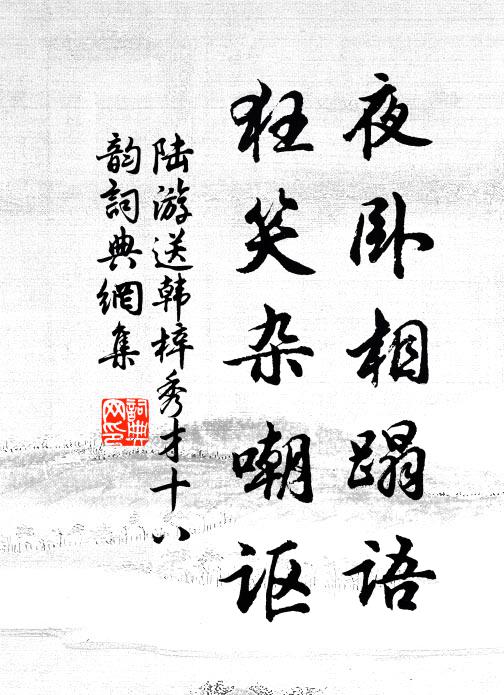 夜卧相蹋语
狂笑杂嘲讴
陆游送韩梓秀才十八
韵词典网集
詞典
网印